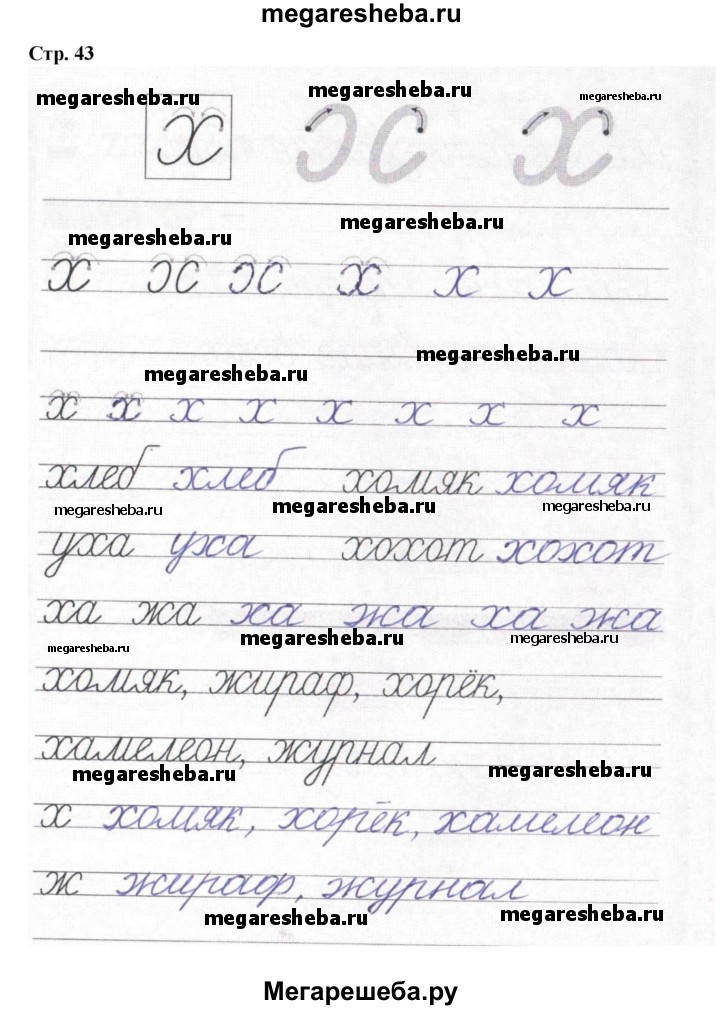 megaresheba.ru
Стр. 43
megaresheba.ru megaresheba.ru megaresheba.ru
х х х
megaresheba.ru
megaresheba.ru
х х х х х х
megaresheba.ru
megaresheba.ru
х х х х х х х х
хлеб хлеб хомяк хомяк
megaresheba.ru megaresheba.ru megaresheba.ru
уха уха хохот хохот
ха жа ха жа ха жа
megaresheba.ru megaresheba.ru megaresheba.ru
хомяк, жираф, хорёк,
хамелеон, журнал
megaresheba.ru megaresheba.ru
х хомяк, хорёк, хамелеон
ж жираф, журнал
megaresheba.ru megaresheba.ru
Мегарешеба.ру